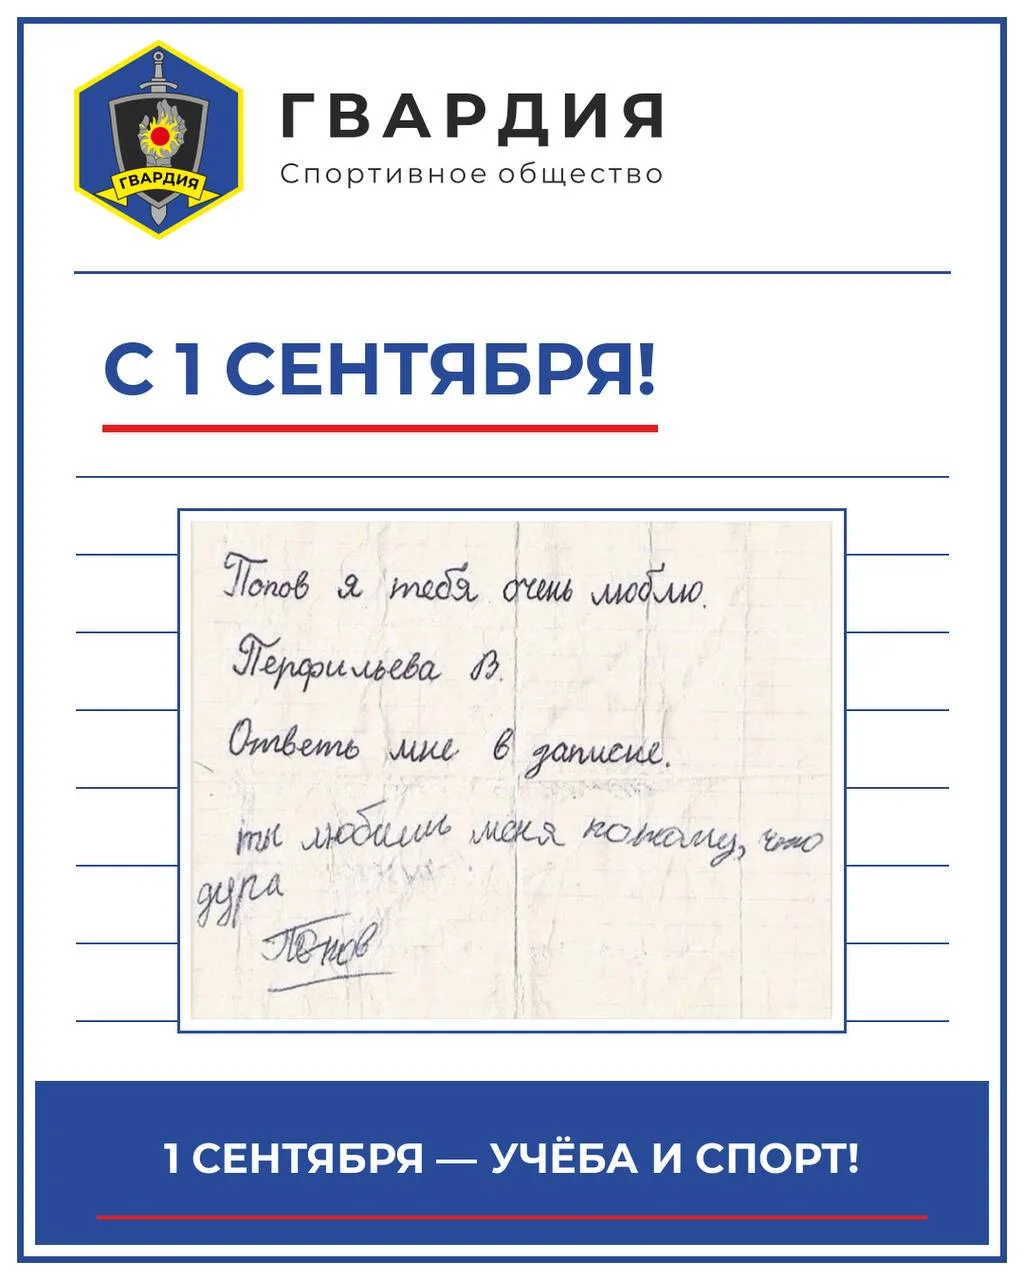 ГВАРДИЯ
ГВАРДИЯ
Спортивное общество
С 1 СЕНТЯБРЯ!
Попов я тебя очень люблю.
Перфильева В.
Ответь мне в записке.
ты любишь меня потому, что
дура
Попов
1 СЕНТЯБРЯ — УЧЁБА И СПОРТ!